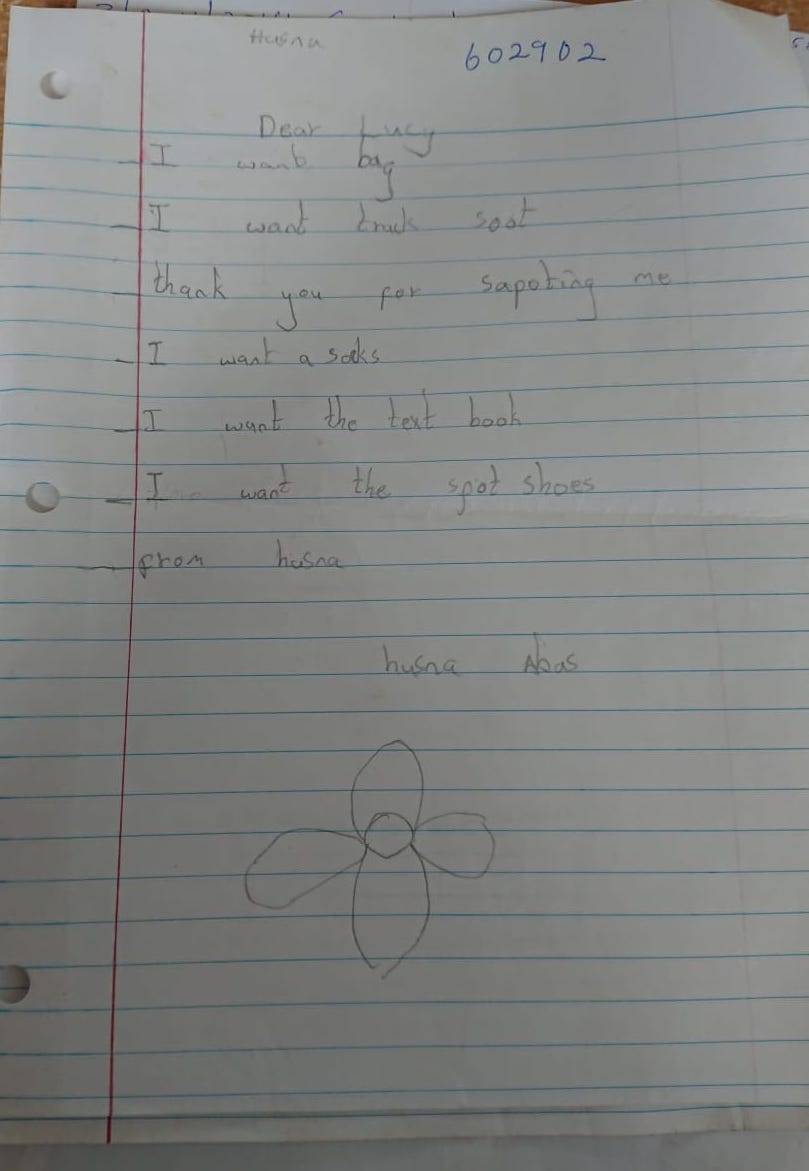 Husna 602902
Dear Lucy
- I want bag
- I want track soot
- thank you for sapoting me
- I want a soks
- I want the text book
- I want the spot shoes
- from husna
husna Abas